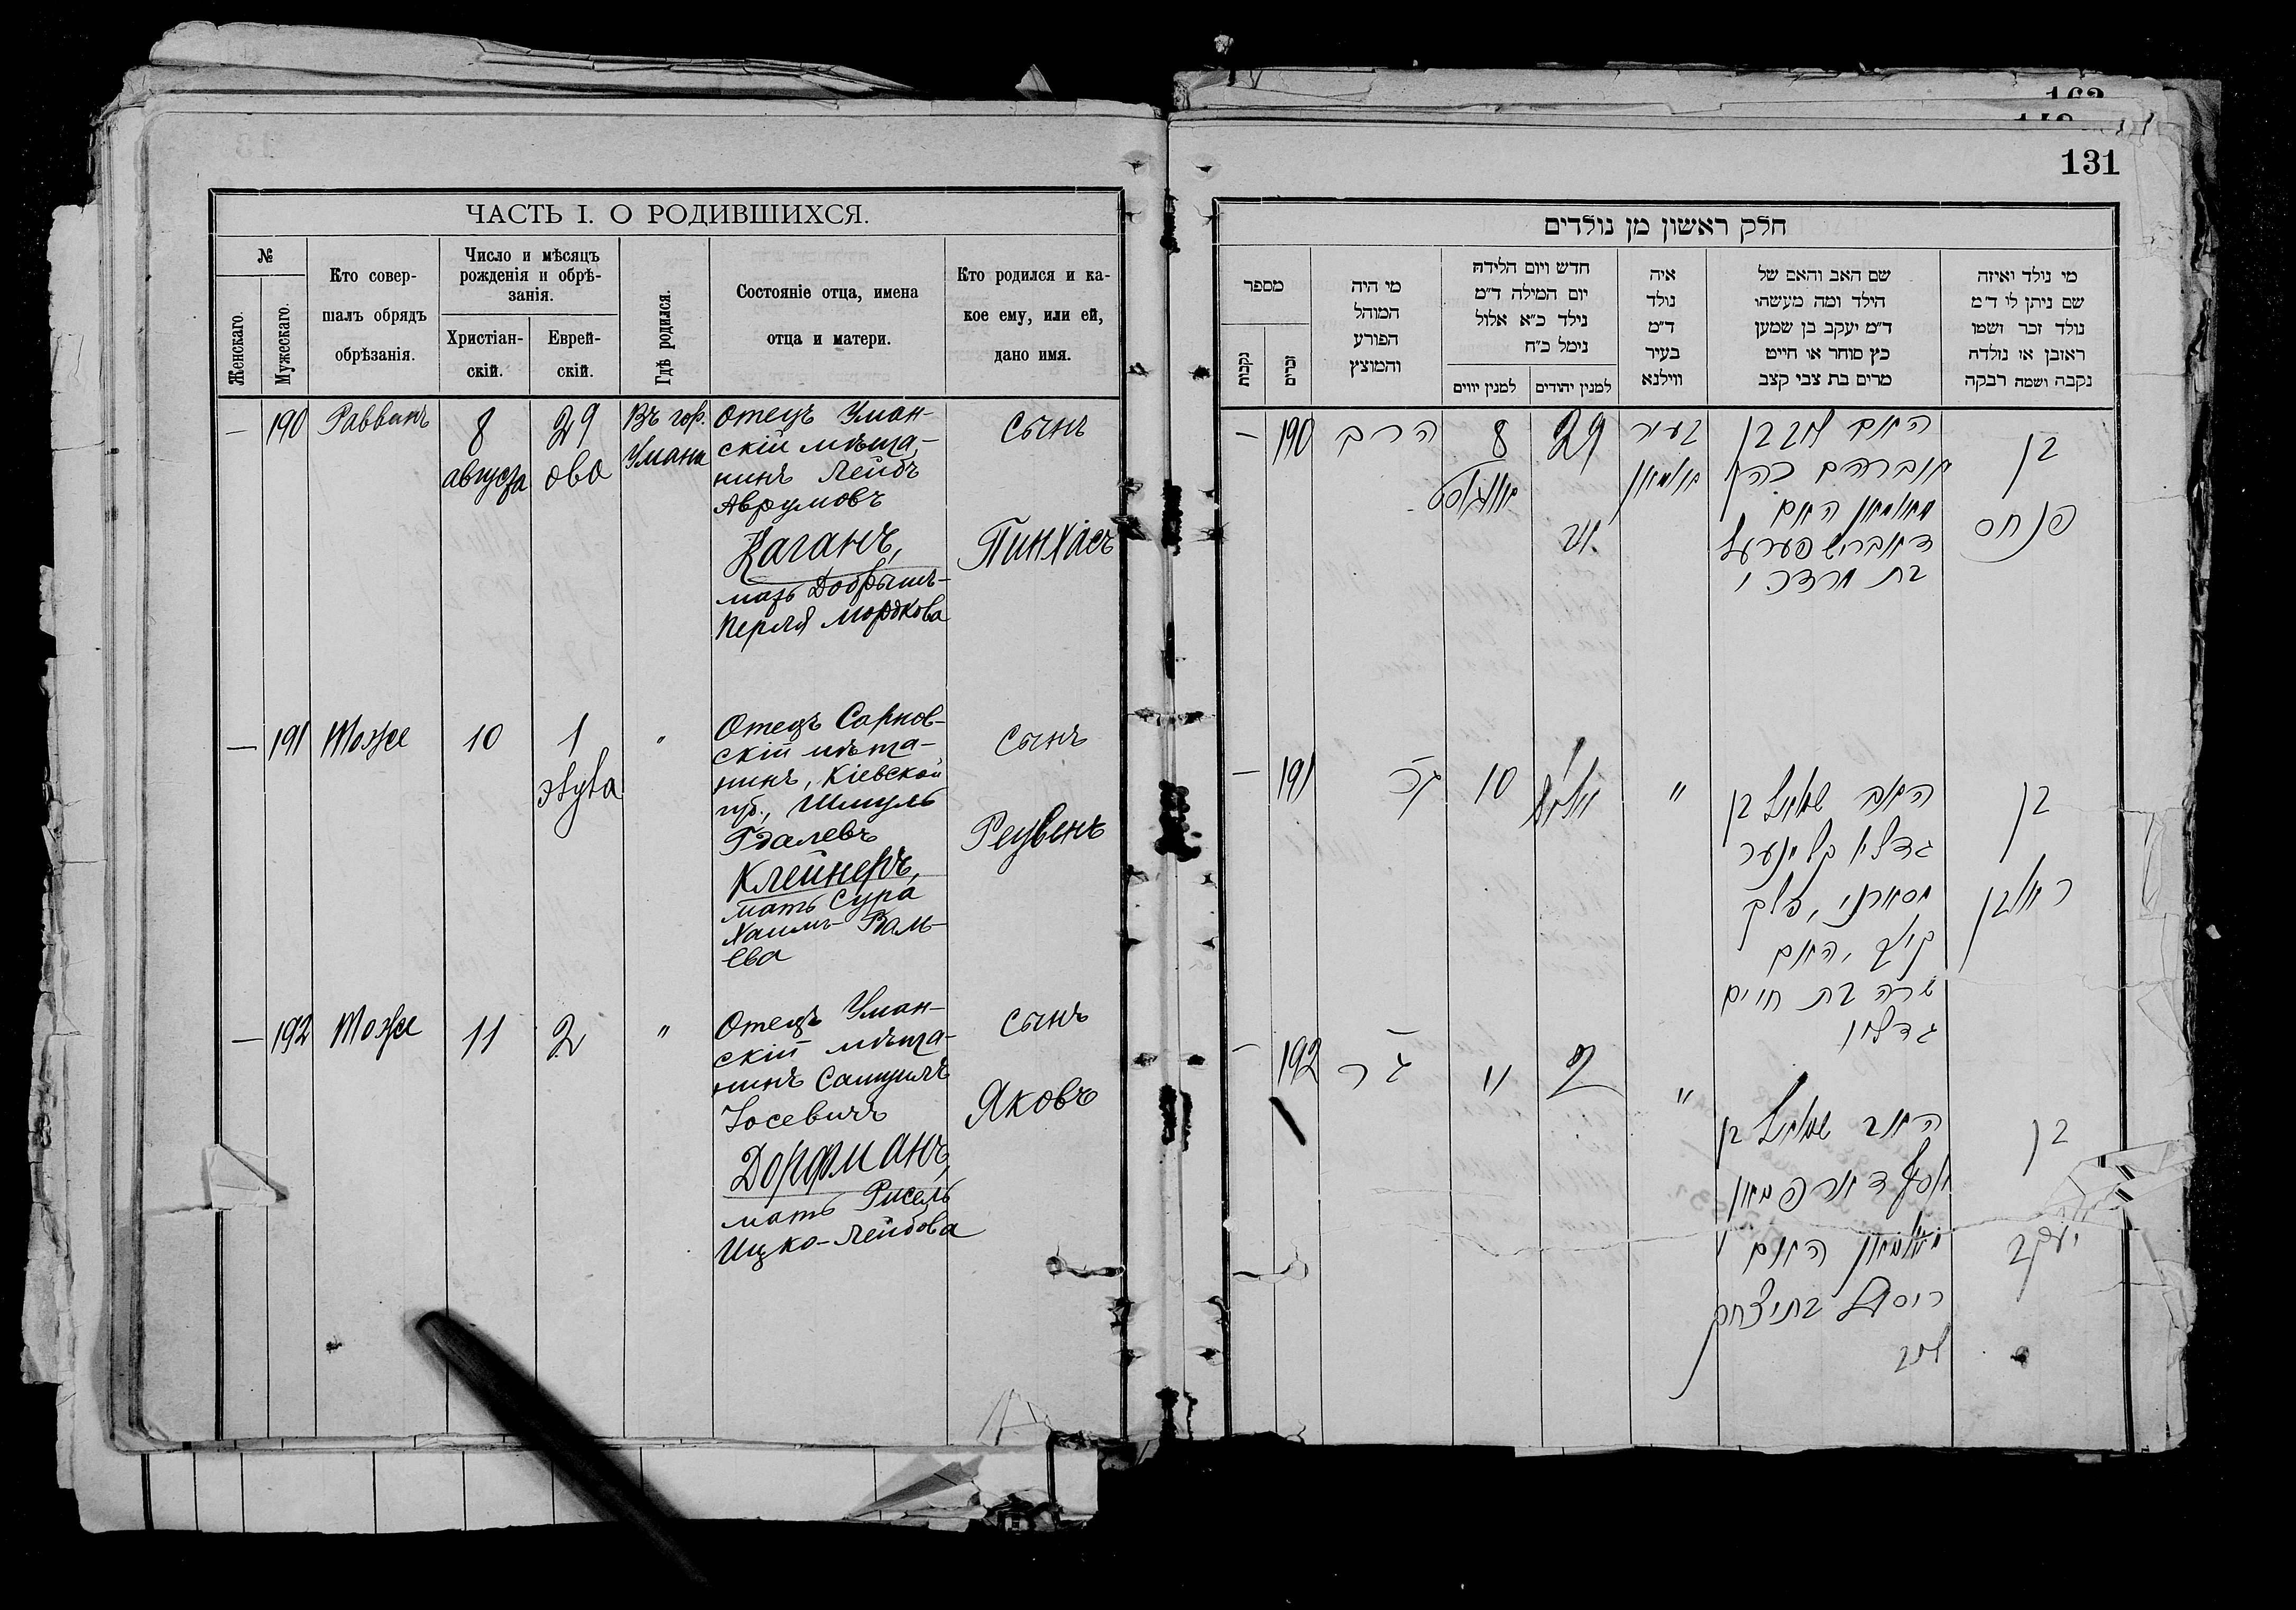 163
131
ЧАСТЬ I. О РОДИВШИХСЯ.
№
Женскаго.
Мужескаго.
Кто совер-
шалъ обрядъ
обрѣзанія.
Число и мѣсяцъ
рожденія и обрѣ-
занія.
Христіан-
скій.
Еврей-
скій.
Гдѣ родился.
Состояніе отца, имена
отца и матери.
Кто родился и ка-
кое ему, или ей,
дано имя.
—
190
Раввинъ
8
августа
29
ова
Въ гор.
Умани
Отецъ Уман-
скій мѣща-
нинъ Лейбъ
Аврумовъ
Каганъ,
мать Добрышъ-
Перля Мордкова
Сынъ
Пинхасъ
—
191
Тоже
10
1
элула
"
Отецъ Сарнов-
скій мѣща-
нинъ, Кіевской
губ., Шмуль
Гдалевъ
Клейнеръ,
мать Сура
Хаимъ-
Сынъ
Реувенъ
—
192
Тоже
11
2
"
Отецъ Уман-
скій мѣща-
нинъ Самуилъ
Іосевичъ
Дорфманъ,
мать Рисель
Ицко-Лейбова
Сынъ
Яковъ
חלק ראשון מן נולדים
מספר
נקבות
זכרים
מי היה
המוהל
הפורע
והמוצץ
חדש ויום הלידה
יום המילה ד״מ
נילד כ״א אלול
נימל כ״ח
למנין יווים
למנין יהודים
איה
נולד
ד״מ
בעיר
ווילנא
שם האב והאם של
הילד ומה מעשהו
ד״מ יעקב בן שמען
כץ סוחר או חייט
מרים בת צבי קצב
מי נילד ואיזה
שם ניתן לו ד״מ
נולד זכר ושמו
ראובן או נולדה
נקבה ושמה רבקה
—
190
הרב
8
אוגוסט
29
אב
בעיר
אומאן
האב ליב בן
אברהם כהן
מאומאן האם
דאבריש פערעל
בת מרדכי
בן
פנחס
—
191
10
"
האב שמואל בן
גדליו קליינער
פלך
קיוב, האם
שרה בת חיים
בן
ראובן
—
192
11
2
"
האב שמואל בן
יוסף דארפמאן
מאומאן האם
ריסיל בת יצחק
ליב
בן
יעקב